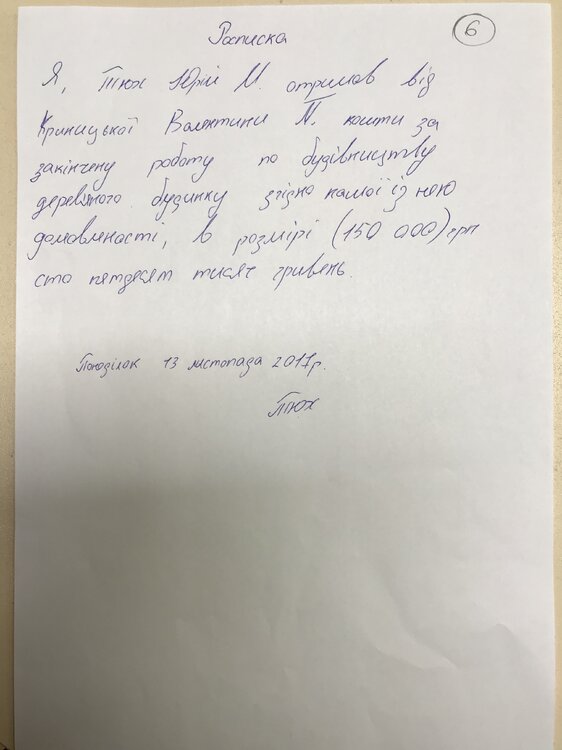 Расписка
6
Я, Тюх Юрій М. отримав від
Криницької Валентини П. кошти за
закінчену роботу по будівництву
деревяного будинку згідно нашої із нею
домовленості, в розмірі (150 000) грн
сто петдесят тисяч гривень.
Понеділок 13 листопада 2017р.
Тюх